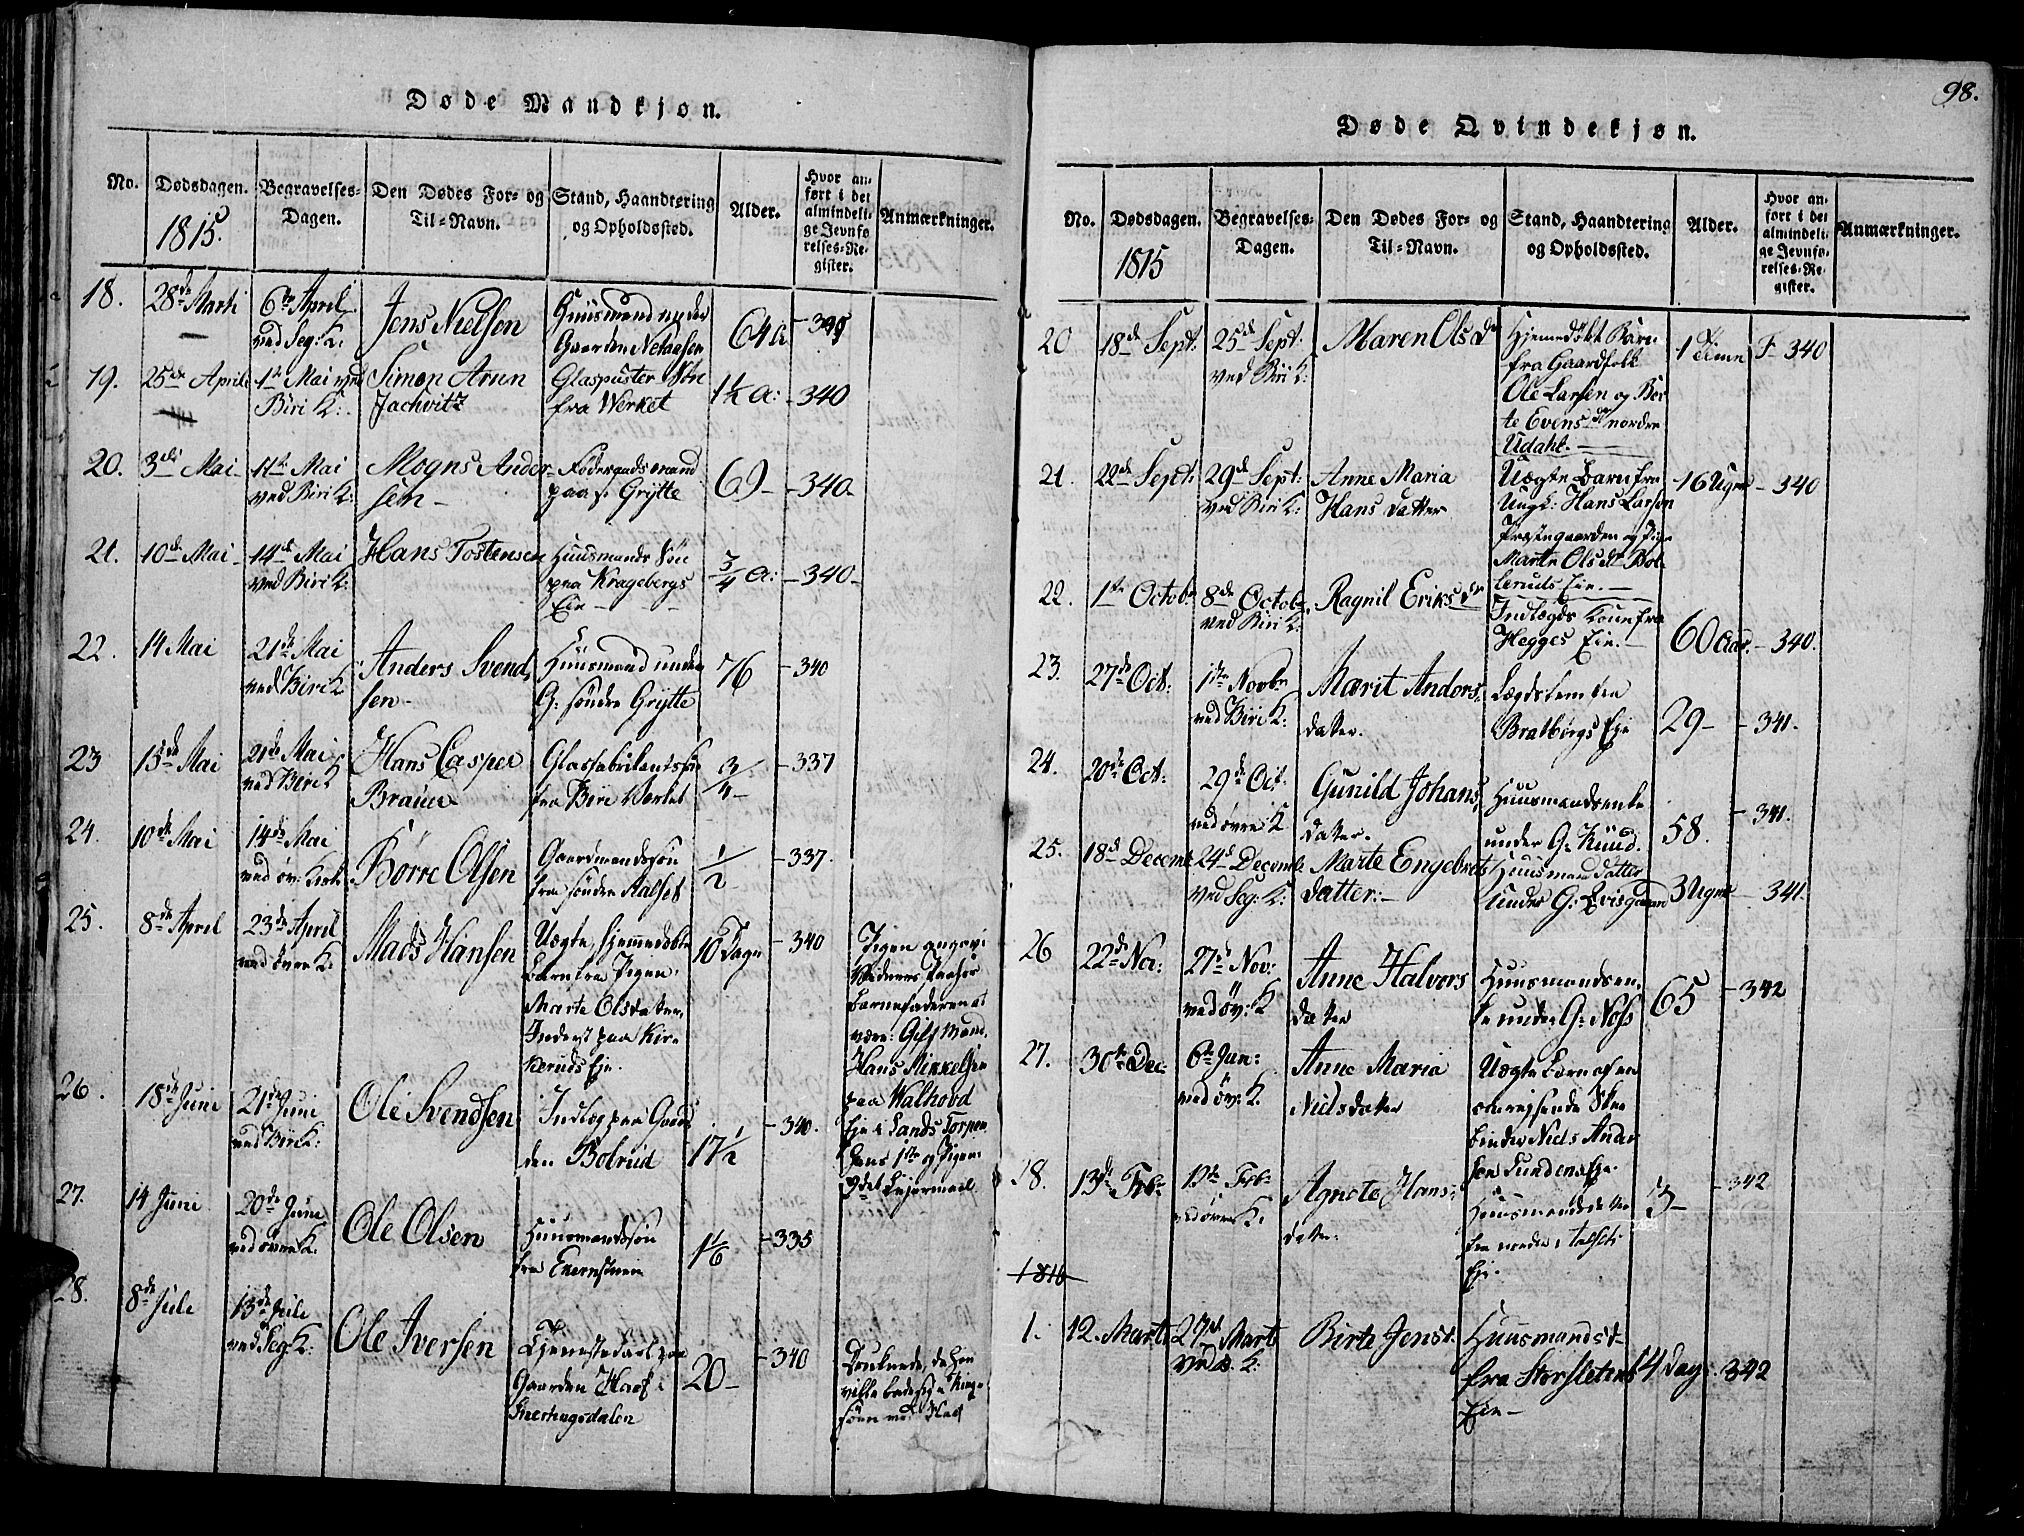 98.
Døde Mandkjøn.
No.
Dødsdagen.
1815.
Begravelses-
Dagen.
Den Dødes For- og
Til-Navn.
Stand, Haandtering
og Opholdssted.
Alder.
Hvor an-
ført i det
almindeli-
ge Jevnfø-
relses-Re-
gister.
Anmærkninger.
18.
28de Marti
6te April
ved Seg: K:
Jens Nielsen
Huusmand
Gaarden
64 a
19.
25de April
1ste Mai ved
Biri K:
Simon Arnn
Jachvitz
Glaspuster Søn
fra Werket
1¼ a:
-340
20.
3die Mai
11te Mai
ved Biri K:
Mogns Ander
sen -
Føderaadsmand
paa s: Grytte
69-
-340-
21.
10de Mai
14de Mai
ved Biri K:
Hans Tostensen
Huusmands Søn
paa Kragebergs
Eie -
¾ a:
-340-
22.
14 Mai
21de Mai
ved Biri K
Anders Svend
sen-
Huusmand under
G: søndre Grytte
76
-340
23
15de Mai
21de Mai
ved Biri K
Hans Casper
Braun
Glasfabrikants søn
fra Biri Verket
¾-
-337
24.
10de Mai
14de Mai
ved øv: Kirke
Børre Olsen
Gaardmandssøn
fra søndre Aalset
½
-337.
25.
8de April
23de April
ved øvre K:
Mads Hansen
Uægte, hjemmedøbt
Barn fra Pigen,
Marte Olsdatter,
Inderst paa Kir-
keruds Eje.
10 Dage
-340
Pigen angav i
Barnefaderen at
være: Gift Mand.
Hans Mikkelsen
paa Walhovd
Eje i Lands Torpen
hans 1ste og Pigens
2det Lejermaal
26.
18de Juni
21de Juni
ved Biri K:
Ole Svendsen
Indlæg paa Gaar
den Bolrud
17½
-340.
27.
14 Juni
20de Juni
ved øvre K.
Ole Olsen
Huusmandssøn
fra
1⅙
-335
28.
8de Juli
13de Juli
ved Seg: K:
Ole Iversen
Tjenestekarl paa
Gaarden
20-
-340
Druknede, da han
ville bade sig i
Døde Qvindekjøn.
No.
Dødsdagen.
1815
Begravelses-
Dagen.
Den Dødes For- og
Til-Navn.
Stand, Haandtering
og Opholdssted.
Alder.
Hvor an-
ført i det
almindeli-
ge Jevnfø-
relses-Re-
gister.
Anmærkninger.
20
18de Sept:
25de Sept:
ved Biri K:
Maren Olsdr
Hjemmedøbt Barn
fra Gaardfolk
Ole Larsen og Ber
te Evensdr nordre
Udahl.
1 Time
F 340
21.
22de Sept:
29de Sept:
ved Biri K:
Anne Maria
Hans datter
Uægte Barn fra
Ungk: Hans Larsen
Præstegaarden og Pige
Marte Olsdr Bol-
leruds Eie.
16 Uger
-340
22.
1ste Octob:
8de Octob:
ved Biri K:
Ragnil Eriksdr
Indlægds Kone fra
Hegges Eie.
60 aar
-340.
23.
27de Oct:
1ste Novbr
ved Biri K:
Marit Anders,
datter.
Lægdslem fra
Bratbergs Eje
29-
-341.
24.
20de Oct:
29de Oct.
ved øvre K
Gunild Johans,
datter.
Huusmandsenke
under G:
58.
-341.
25.
18de Decemb
24de Decembr
ved Seg: K:
Marte Engebrets
datter:-
Huusmandsdatter
Under G:
3 Uger
341.
26
22de Nov:
27de Nov:
ved øv: K
Anne Halvors
datter
Huusmandsen,
ke under G: Nøss
65
-342
27.
30te Dec:
6te Jan:
ved øv: K.
Anne Maria
Nielsdatter
Uægte Barn af en
omrejsende
binder Niels Ander
sen
28.
13de Feb:
19de Feb:
ved øvre K:
Agnete Hans-
datter.
Huusmandsdatter
fra nordre
Eje.
3-
-342
1816
1.
12. Marts
27de Marts
ved ø. K:
Birte Jensd.
Huusmandsd.
fra Storsletens
Eie-
14 Dage
342